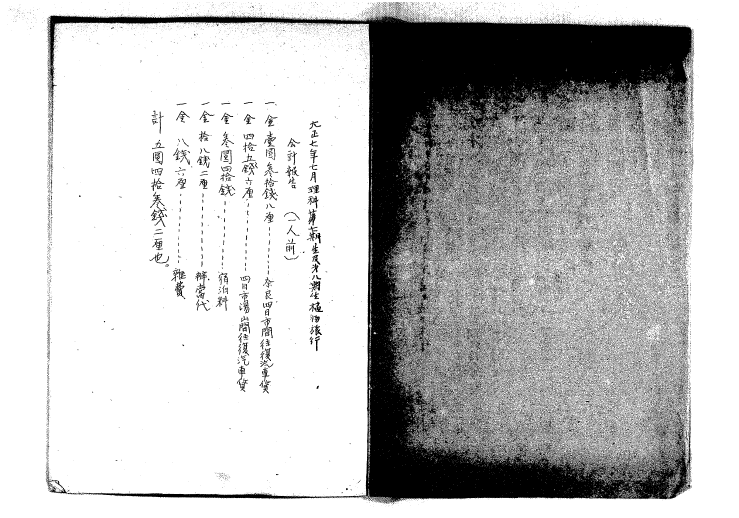 大正七年七月理科第七期生及第八期生植物旅行
会計報告 (一人前)
一金壹圓参拾銭八厘-----奈良四日市間往復汽車賃
一金四拾五銭六厘-----四日市湯山間往復汽車賃
一金参圓四拾銭-----宿泊料
一金拾八銭二厘-----辨當代
一金八銭六厘-----雑費
計 五圓四拾参銭二厘也。